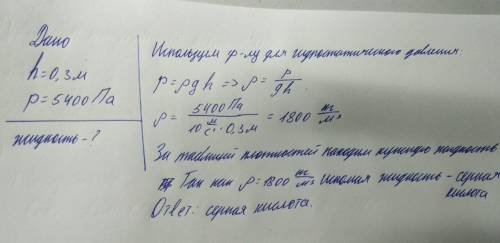 Дано
h=0,3м
p=5400Па
жидкость-?
Используем ф-лу для гидростатического давления:
p=ρgh => ρ= p/gh
ρ= 5400Па / 10 м/с² · 0,3м = 1800 кг/м³
За таблицей плотностей находим нужную жидкость
Так как ρ=1800 кг/м³ искомая жидкость - серная
кислота
Ответ: серная кислота.